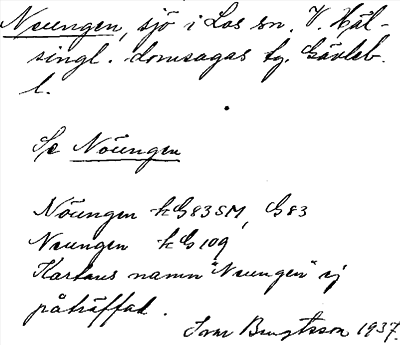 Noungen, sjö i Los sn. V. Häl-
singl. domsagas tg. Gävleb.
l.
Se Nöungen
Nöungen kG83SM, G83
Noungen kG109
Kartans namn "Noungen" ej
påträffat.
Ivar Bengtsson 1937.